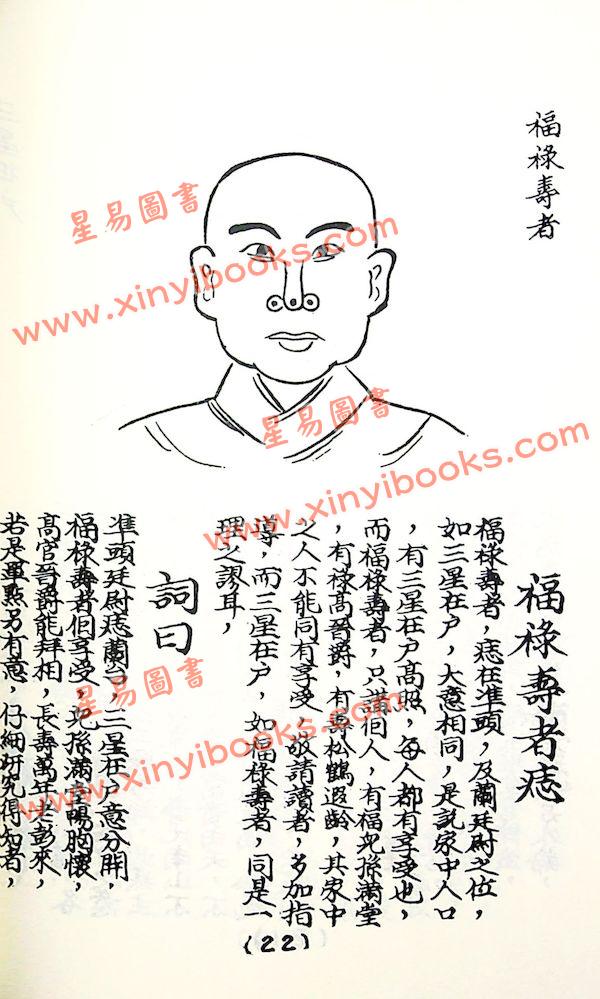 福祿壽者
福祿壽者痣
福祿壽者,痣在凖頭,及蘭廷尉之位,
如三星在户,大意相同,是説家中人口
,有三星在户高照,每人都有享受也,
而福祿壽者,只人,有福兒孫滿堂
,有祿高晉爵,有壽松鶴遐齡,其家中
之人不能同有享受,敬請讀者,多加指
導,而三星在户,如福祿壽者,同是一
理之謬耳,
詞曰
凖頭廷尉痣蘭台,三星在户意分開,
福祿壽者享受,兒孫滿堂暢胸懷,
高官晉爵能拜相,長壽萬年老彭來,
若是單點方有意,仔細研究得知者,
(22)
星易圖書
www.xinyibooks.com
星易圖書
www.xinyibooks.com
星易圖書
www.xinyibooks.com